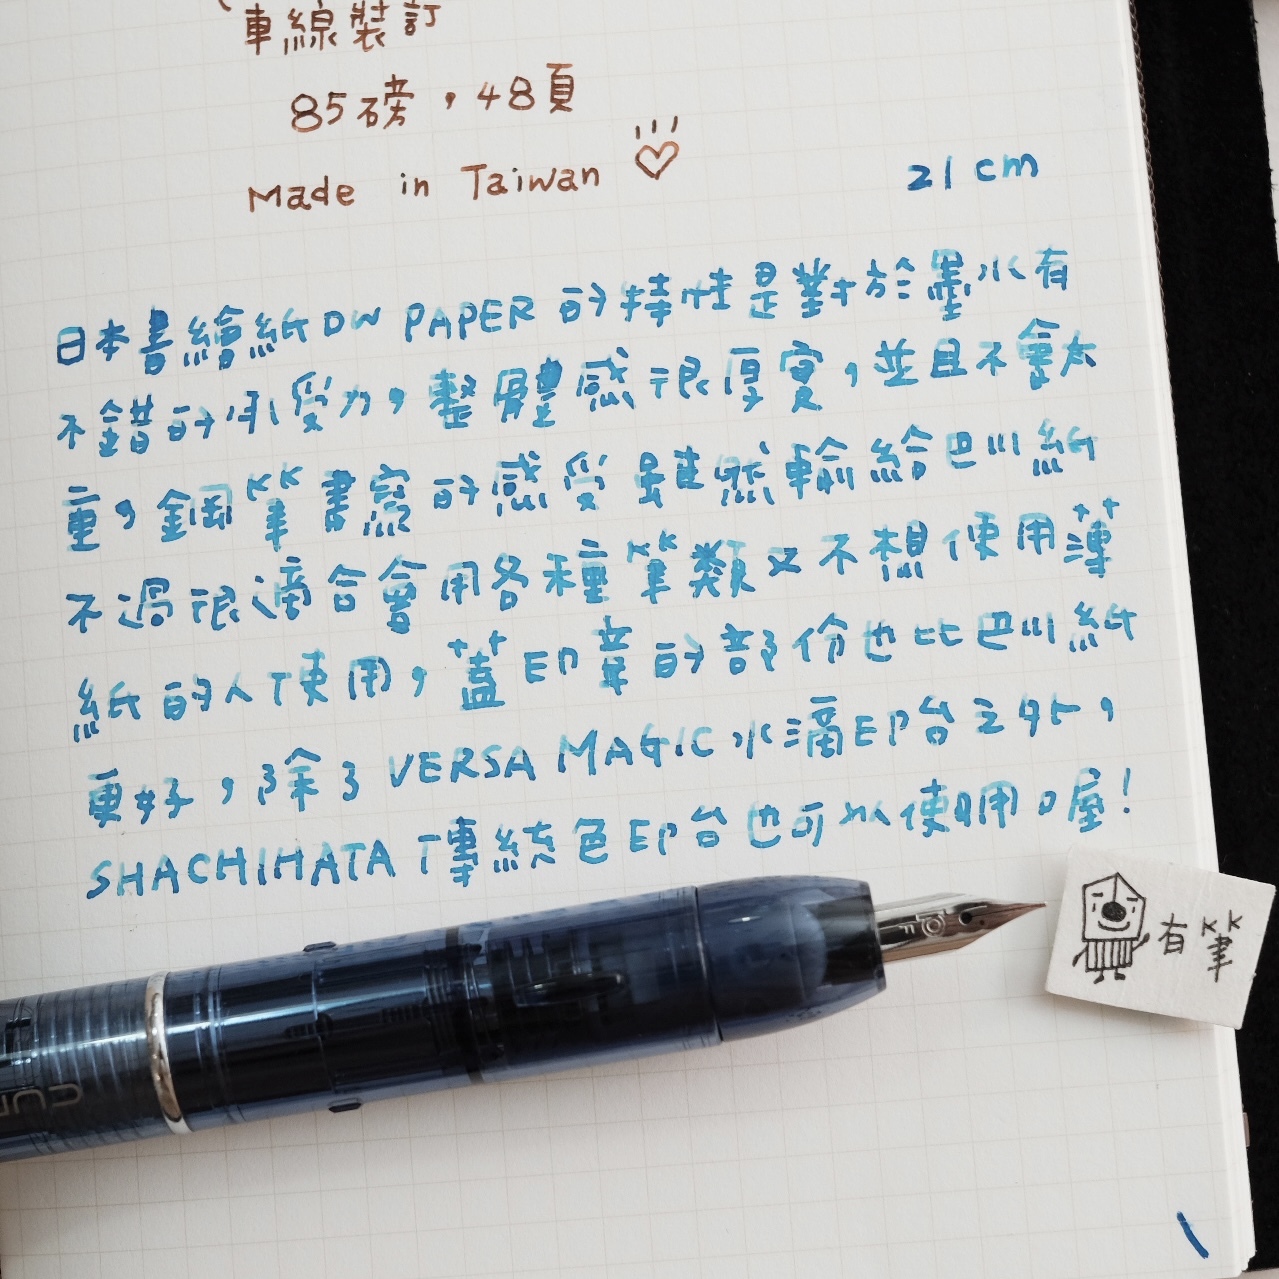 車線裝訂
85磅，48頁
Made in Taiwan
21cm
日本書繪紙DW PAPER 的特性是對於墨水有
不錯的承受力，整體感很厚實，並且不會太
重，鋼筆書寫的感受雖然輸給巴川紙
不過很適合會用各種筆類又不想使用薄
紙的人使用，蓋印章的部份也比巴川紙
更好，除了 VERSA MAGIC 水滴印台之外，
SHACHIHATA 傳統色印台也可以使用喔！
有筆